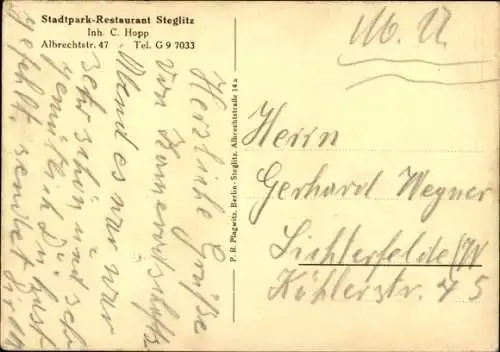 Stadtpark-Restaurant Steglitz
Inh. C. Hopp
Albrechtstr. 47 Tel. G 9 7033
Herzliche Grüße
von Kameradschafts
Abend es war
sehr schön und sehr
gemütlich Du hast
gefehlt, sendet Dir
P. R. Plagwitz, Berlin-Steglitz, Albrechtstraße 14a
M. U.
Herrn
Gerhard Wegner
Lichterfelde/W
Köhlerstr. 45